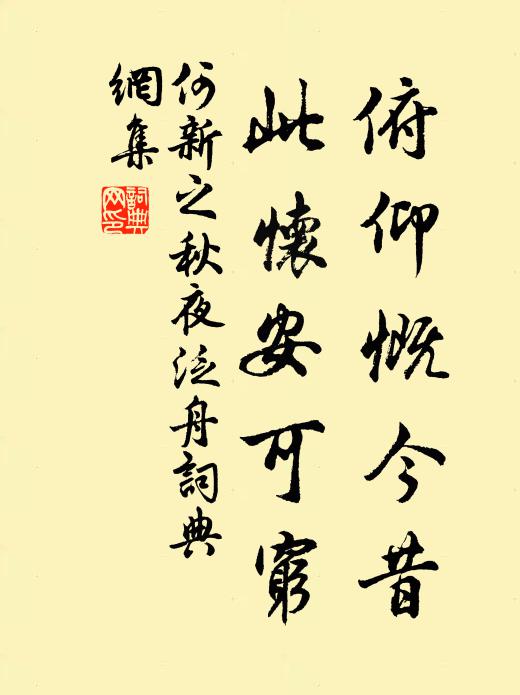 俯仰慨今昔
此懷安可窮
何新之秋夜泛舟詞典
網集
詞典網印